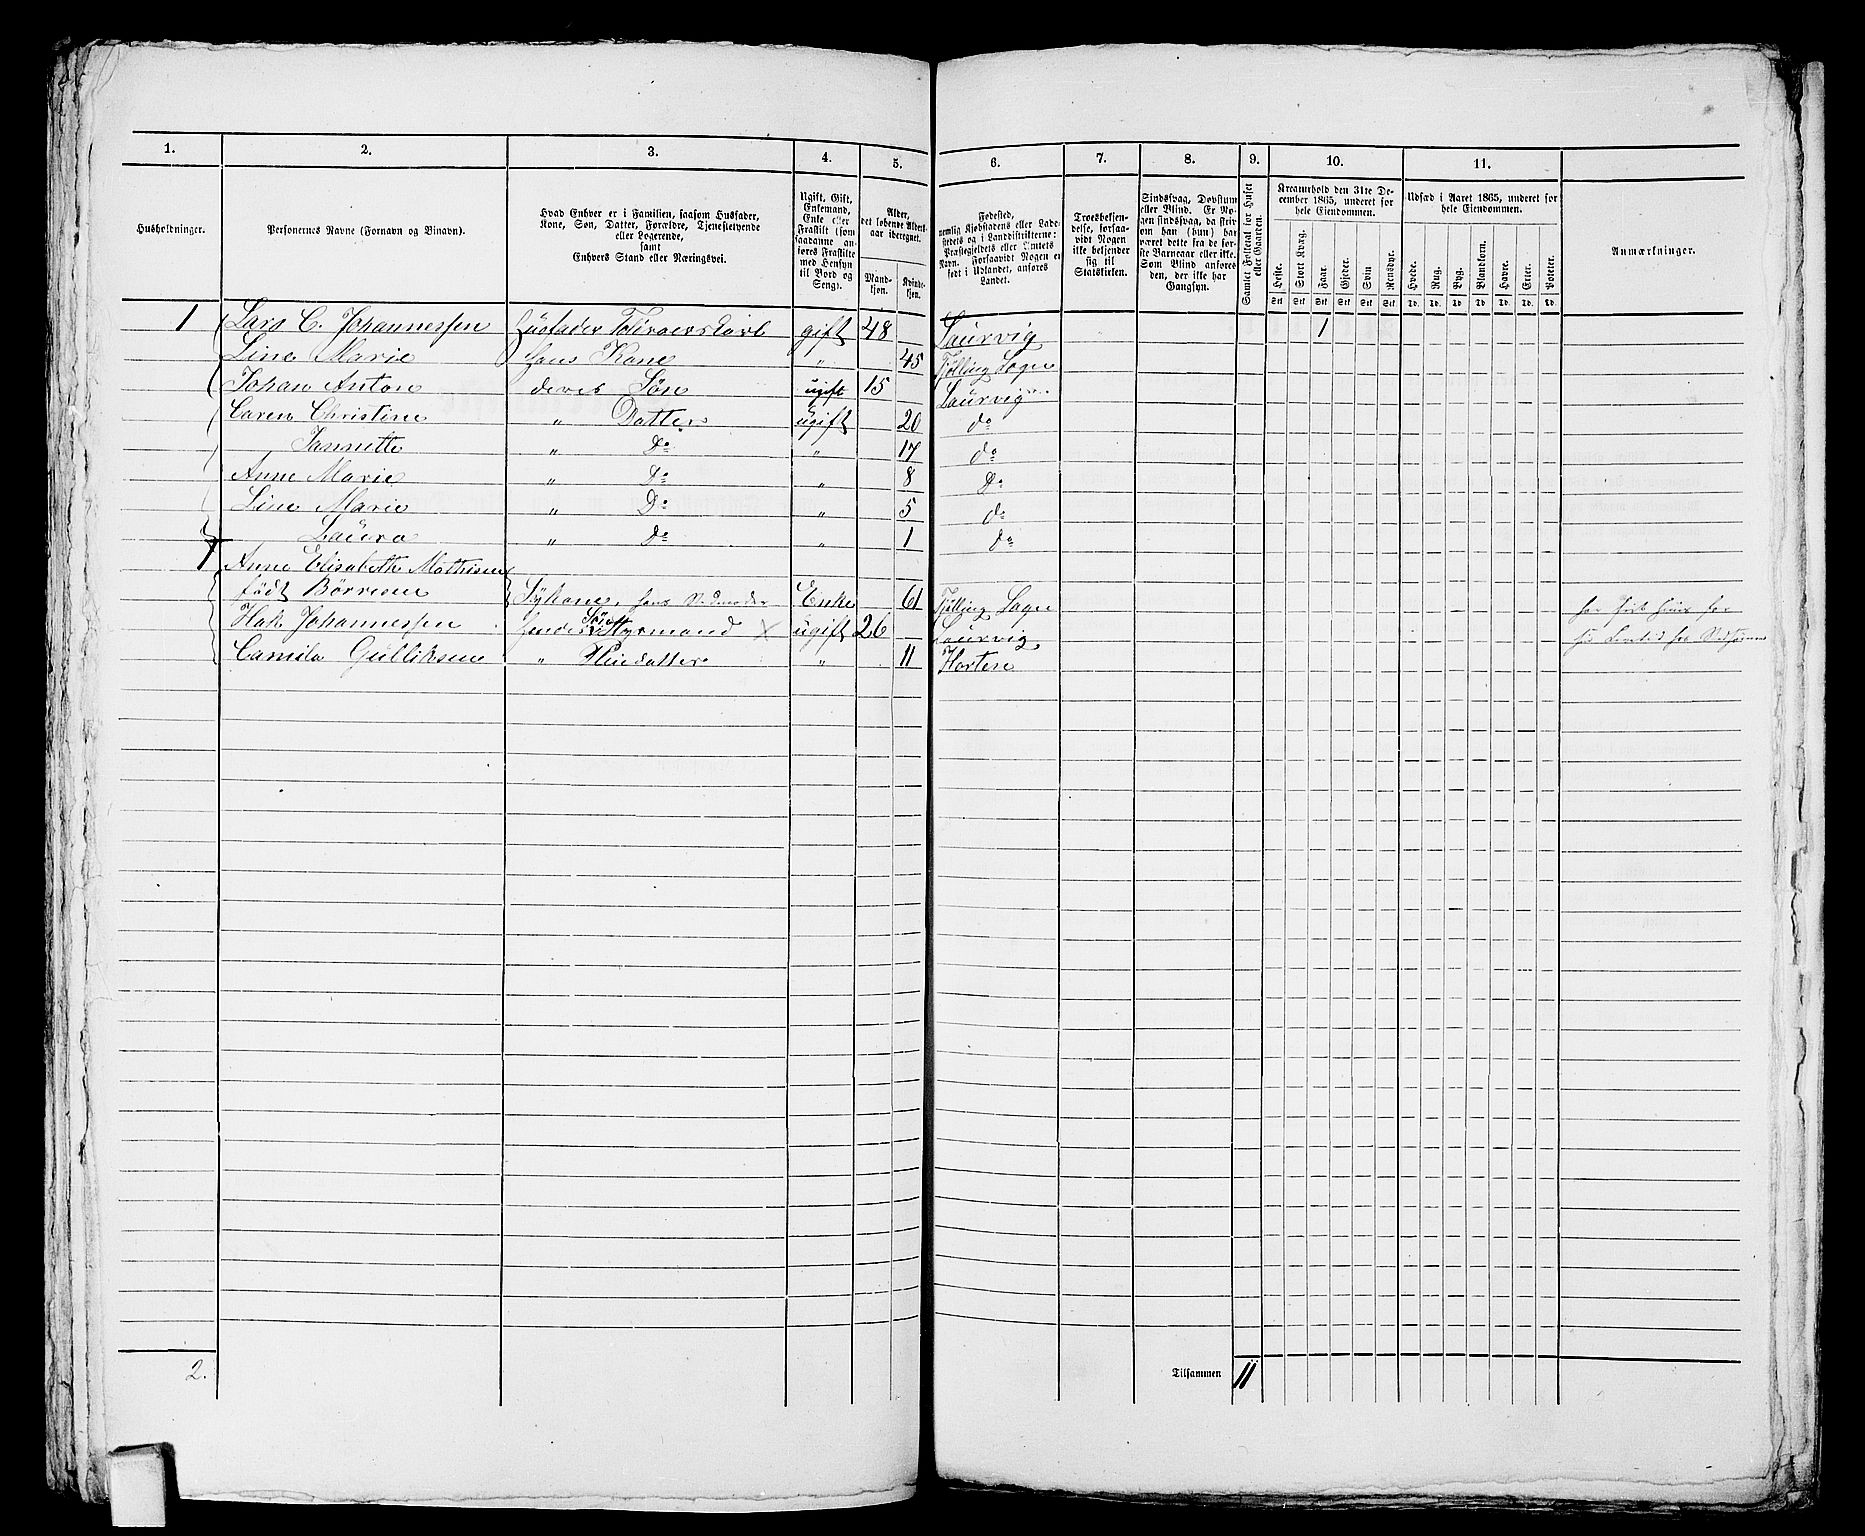 1. 2. 3. 4. 5. 6. 7. 8. 9. 10. 11.
Husholdninger.
Personernes Navne (Fornavn og Binavn).
Hvad Enhver er i Familien, saasom Husfader,
Kone, Søn, Datter, Forældre, Tjenestetyende
eller Logerende,
samt
Enhvers Stand eller Næringsvei.
Ugift, Gift,
Enkemand,
Enke eller
Fraskilt (som
saadanne an-
føres Fraskilte
med Hensyn
til Bord og
Seng).
Alder,
det løbende Alders-
aar iberegnet.
Mand-
kjøn.
Kvinde-
kjøn.
Fødested,
nemlig Kjøbstadens eller Lade-
stedets og i Landdistrikterne:
Præstegjeldets eller Amtets
Navn. Forsaavidt Nogen er
født i Udlandet, anføres
Landet.
Troesbekjen-
delse, forsaa-
vidt Nogen
ikke bekjender
sig til
Statskirken.
Sindssvag, Døvstum
eller Blind. Er No-
gen sindssvag, da skriv
om han (hun) har
været dette fra de før-
ste Barneaar eller ikke.
Som Blind anføres
den, der ikke har
Gangsyn.
Samlet Folketal for Huset
eller Gaarden.
Kreaturhold den 31te De-
cember 1865, underet for
hele Eiendommen.
Heste. Stort Kvæg. Faar. Gjeder. Svin. Rensdyr.
Udsæd i Aaret 1865, underet for
hele Eiendommen.
Hvede. Rug. Byg. Blandkorn. Havre. Erter. Poteter.
Anmærkninger.
Stk Stk Stk Stk Stk Stk Td. Td. Td. Td. Td. Td. Td.
1 Lars C. Johannessen Husfader gift 48 Laurvig 1
Line Marie Hans Kone " 45 Tjølling Sogn
Johan Anton deres Søn ugift 15 Laurvig
Caren Christine " Datter ugift 20 do
Jannette " Do " 17 do
Anne Marie " Do " 8 Do
Line Marie " Do " 5 do
Laura " do " 1 do
1 Anne Elisabeth Mathisen
født Børresen Enke 61 Tjølling Sogn
Hak Johannessen hendes Søn Styrmand × ugift 26 Laurvig
Camila Gulliksen " Pleiedatter " 11 Horten
2. Tilsammen 11